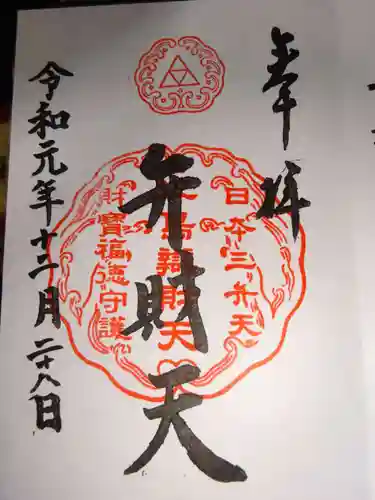 奉拝
弁財天
日本三弁天
財寳福徳守護
令和元年十二月二十八日